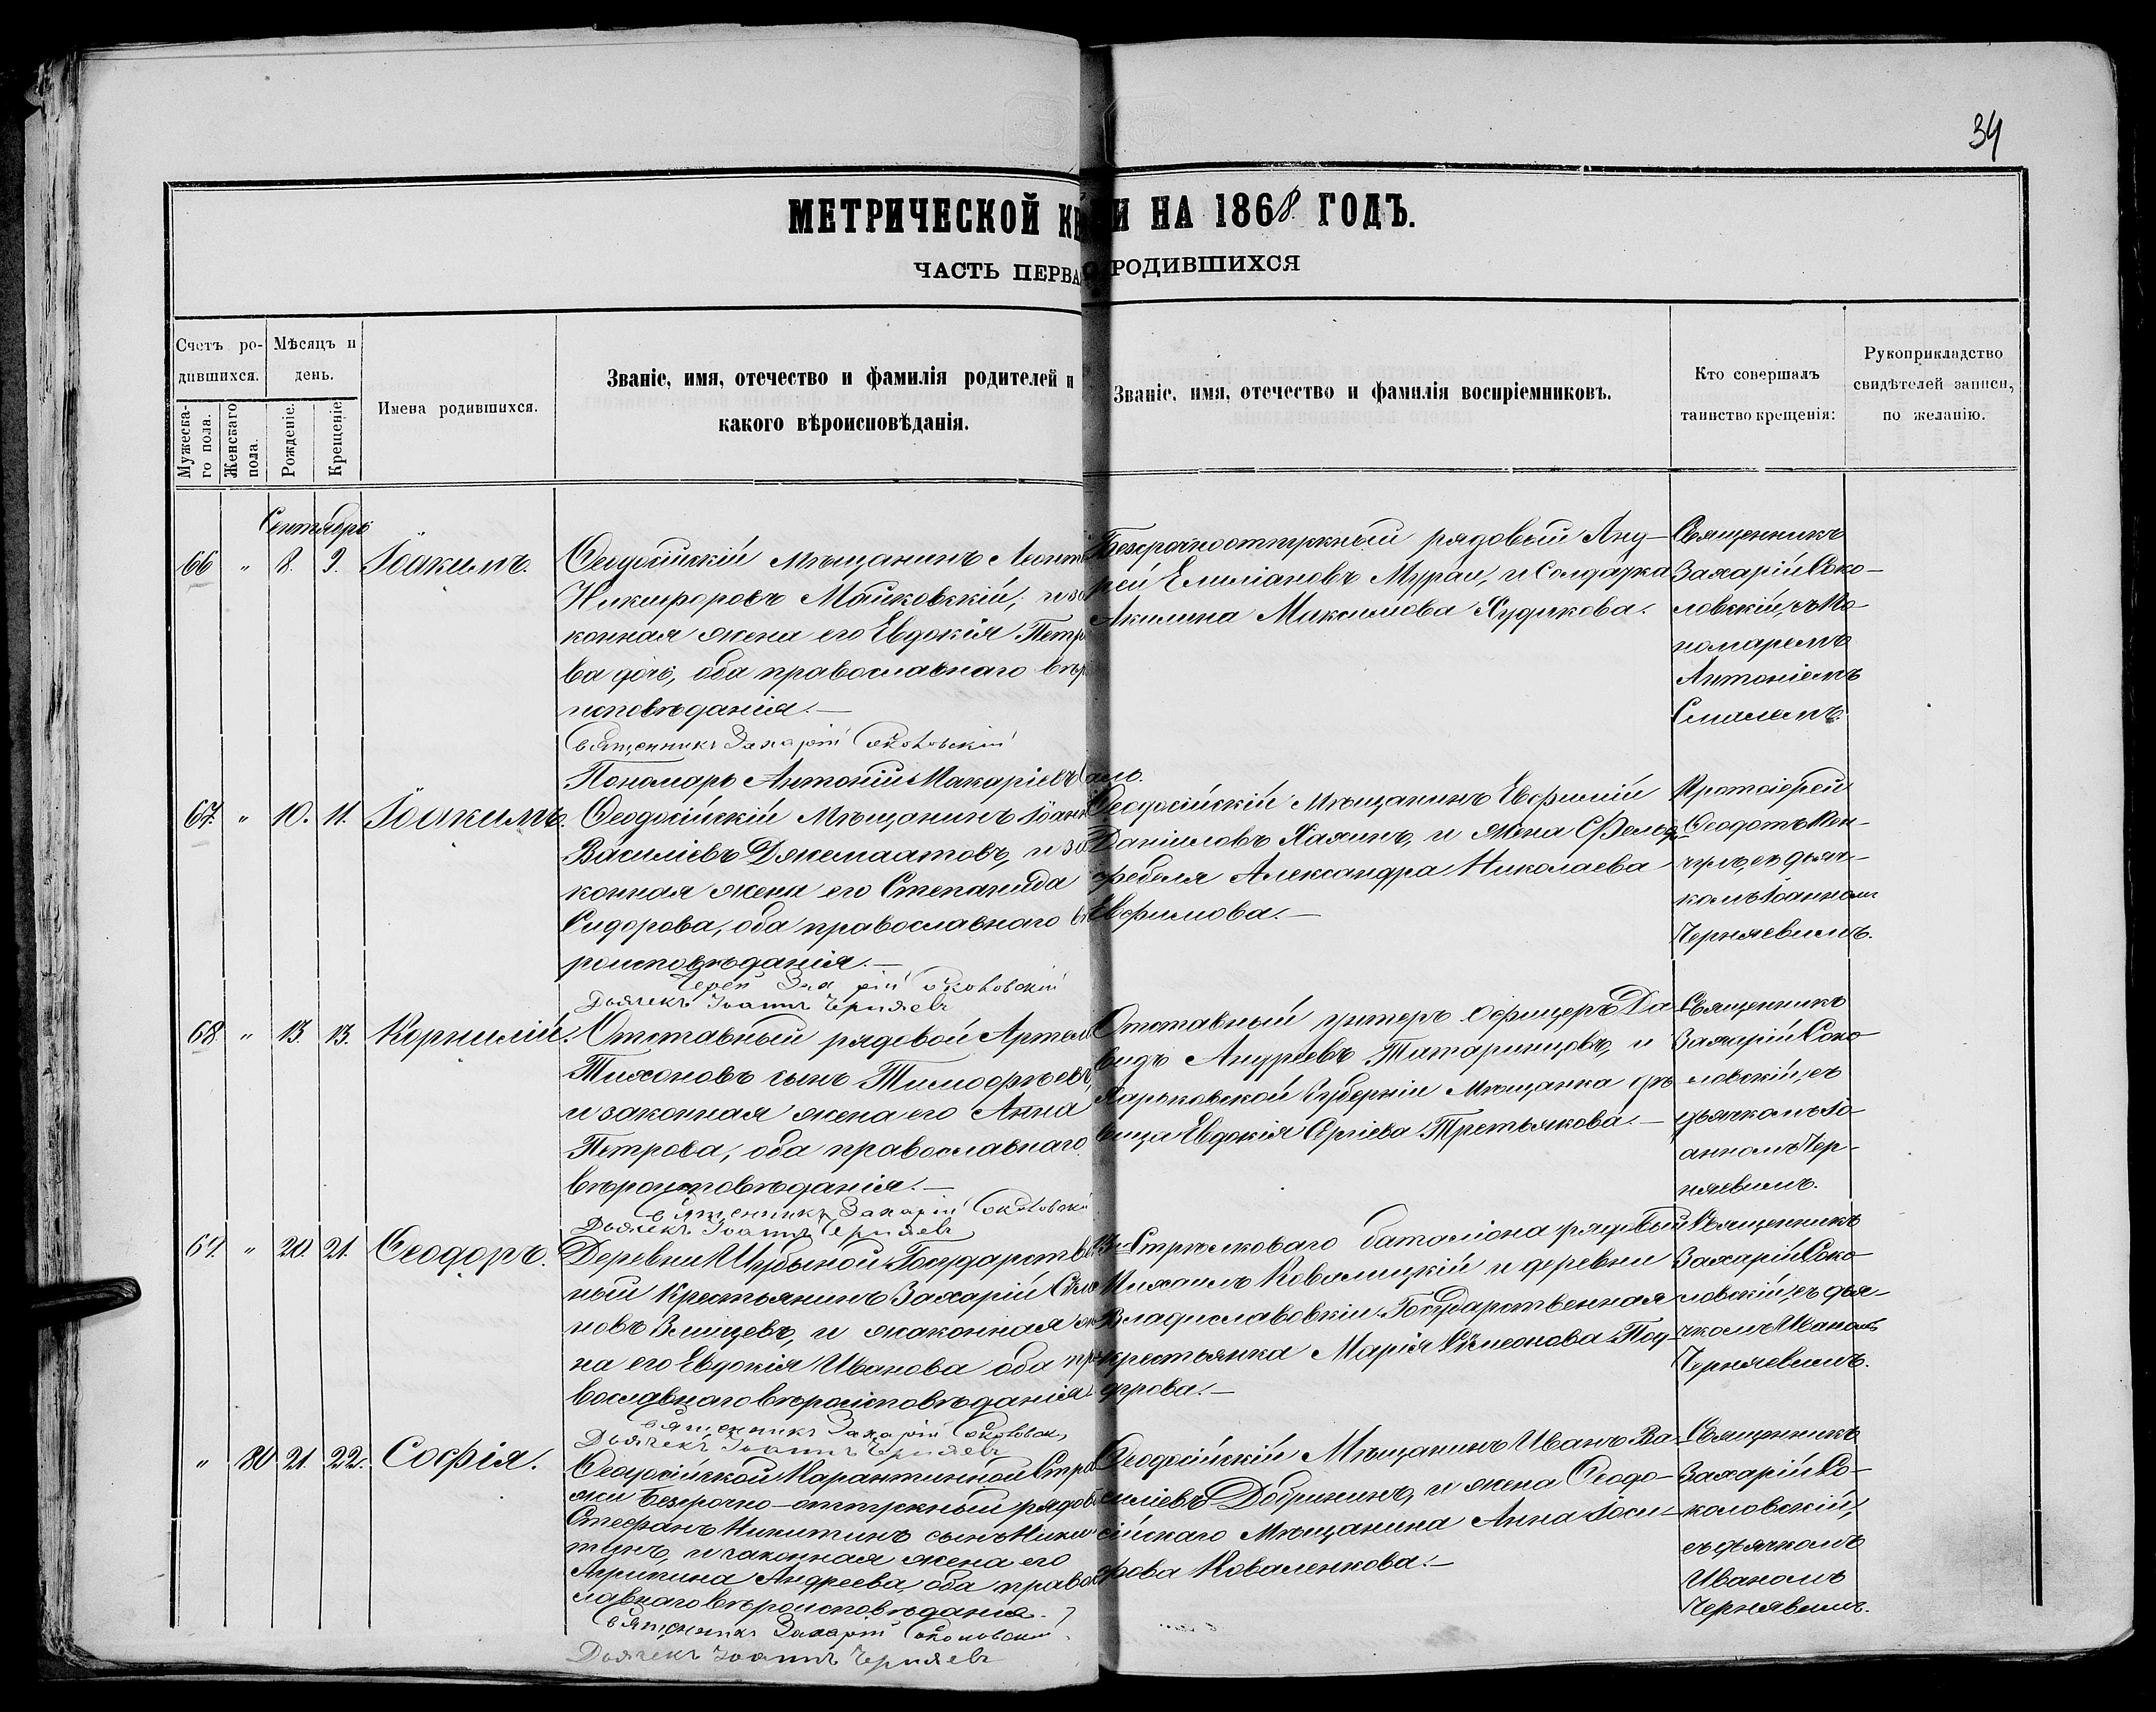 34
МЕТРИЧЕСКОЙ КН И НА 1868. ГОДЪ.
ЧАСТЬ ПЕРВА РОДИВШИХСЯ
Счетъ ро-
дившихся.
Мѣсяцъ и
день.
Мужеска-
го пола.
Женскаго
пола.
Рожденіе.
Крещеніе.
Имена родившихся.
Званіе, имя, отечество и фамилія родителей и
какого вѣроисповѣданія.
Званіе, имя, отечество и фамилія воспріемниковъ.
Кто совершалъ
таинство крещенія:
Рукоприкладство
свидѣтелей записи,
по желанію.
Сентябрь
66 " 8. 9. Іоакимъ.
Ѳеодосійскій Мѣщанинъ Леонт
Никифоровъ Мойковскій, и за
конная жена его Евдокія Петр
ва дочь, оба православнаго вѣр
исповѣданія.—
Священникъ Захарій Соколовскій
Пономарь Антоній Макаріевъ Смаль.
Безсрочноотпускный рядовый Анд-
рей Емиліановъ Мураи, и Солдатка
Акилина Максимова Худикова.
Священникъ
Захарій Соко-
ловскій, съ По-
номаремъ
Антоніемъ
Смалемъ.
67. " 10. 11. Іоакимъ.
Ѳеодосійскій Мѣщанинъ Іоанн
Василіевъ Джемаатовъ, и за
конная жена его Степанида
Сидорова, оба православнаго вѣ
роисповѣданія.—
Іерей Захарій Соколовскій
Дьячекъ Іоаннъ Черняевъ
Ѳеодосійскій Мѣщанинъ Евфимій
Даніиловъ Хахинъ, и жена Фельд-
фебеля Александра Николаева
Евфимова.—
Протоіерей
Ѳеодотъ Кен-
чулъ, съ дьяч-
комъ Іоанномъ
Черняевымъ.
68 " 13. 13. Корнилій.
Отставный рядовой Артем
Тихоновъ сынъ Тимофѣевъ,
и законная жена его Анна
Петрова, оба православнаго
вѣроисповѣданія.—
Священникъ Захарій Соколовскій
Дьячекъ Іоаннъ Черняевъ
Отставный унтеръ Офицеръ Да-
видъ Андреевъ Татаринцовъ, и
Харьковской Губерніи Мѣщанка дѣ-
вица Евдокія Сергіева Третьякова.—
Священникъ
Захарій Соко-
ловскій, съ
дьячкомъ Іо-
анномъ Чер-
няевымъ.
69. " 20. 21. Ѳеодоръ.
Деревни Шубыной Государствен
ный крестьянинъ Захарій Симо
новъ Змицевъ, и законная же
на его Евдокія Иванова оба пра
вославнаго вѣроисповѣданія.
Священникъ Захарій Соколовск
Дьячекъ Іоаннъ Черняевъ
Стрѣлковаго баталіона рядовый
Михаилъ Ковалицкій и деревни
Владиславовкіи Государственная
крестьянка Марія Симеонова Под-
дуброва.—
Священникъ
Захарій Соко-
ловскій, съ дья-
чкомъ Иваномъ
Черняевымъ.
" 80 21. 22. Софія.
Ѳеодосійской Карантинной Стра
жи Безсрочно-отпускный рядовы
Стефанъ Никитинъ сынъ Ники
тинъ, и законная жена его
Агрипина Андреева, оба право
славнаго вѣроисповѣданія.
Священникъ Захарій Соколовскій
Дьячекъ Іоаннъ Черняевъ
Ѳеодосійскій Мѣщанинъ Иванъ Ва-
силіевъ Добринъ, и жена Ѳеодо-
сійскаго Мѣщанина Анна Іоси-
фова Коваленкова.—
Священникъ
Захарій Со-
коловскій,
съ дьячкомъ
Иваномъ
Чернявымъ.